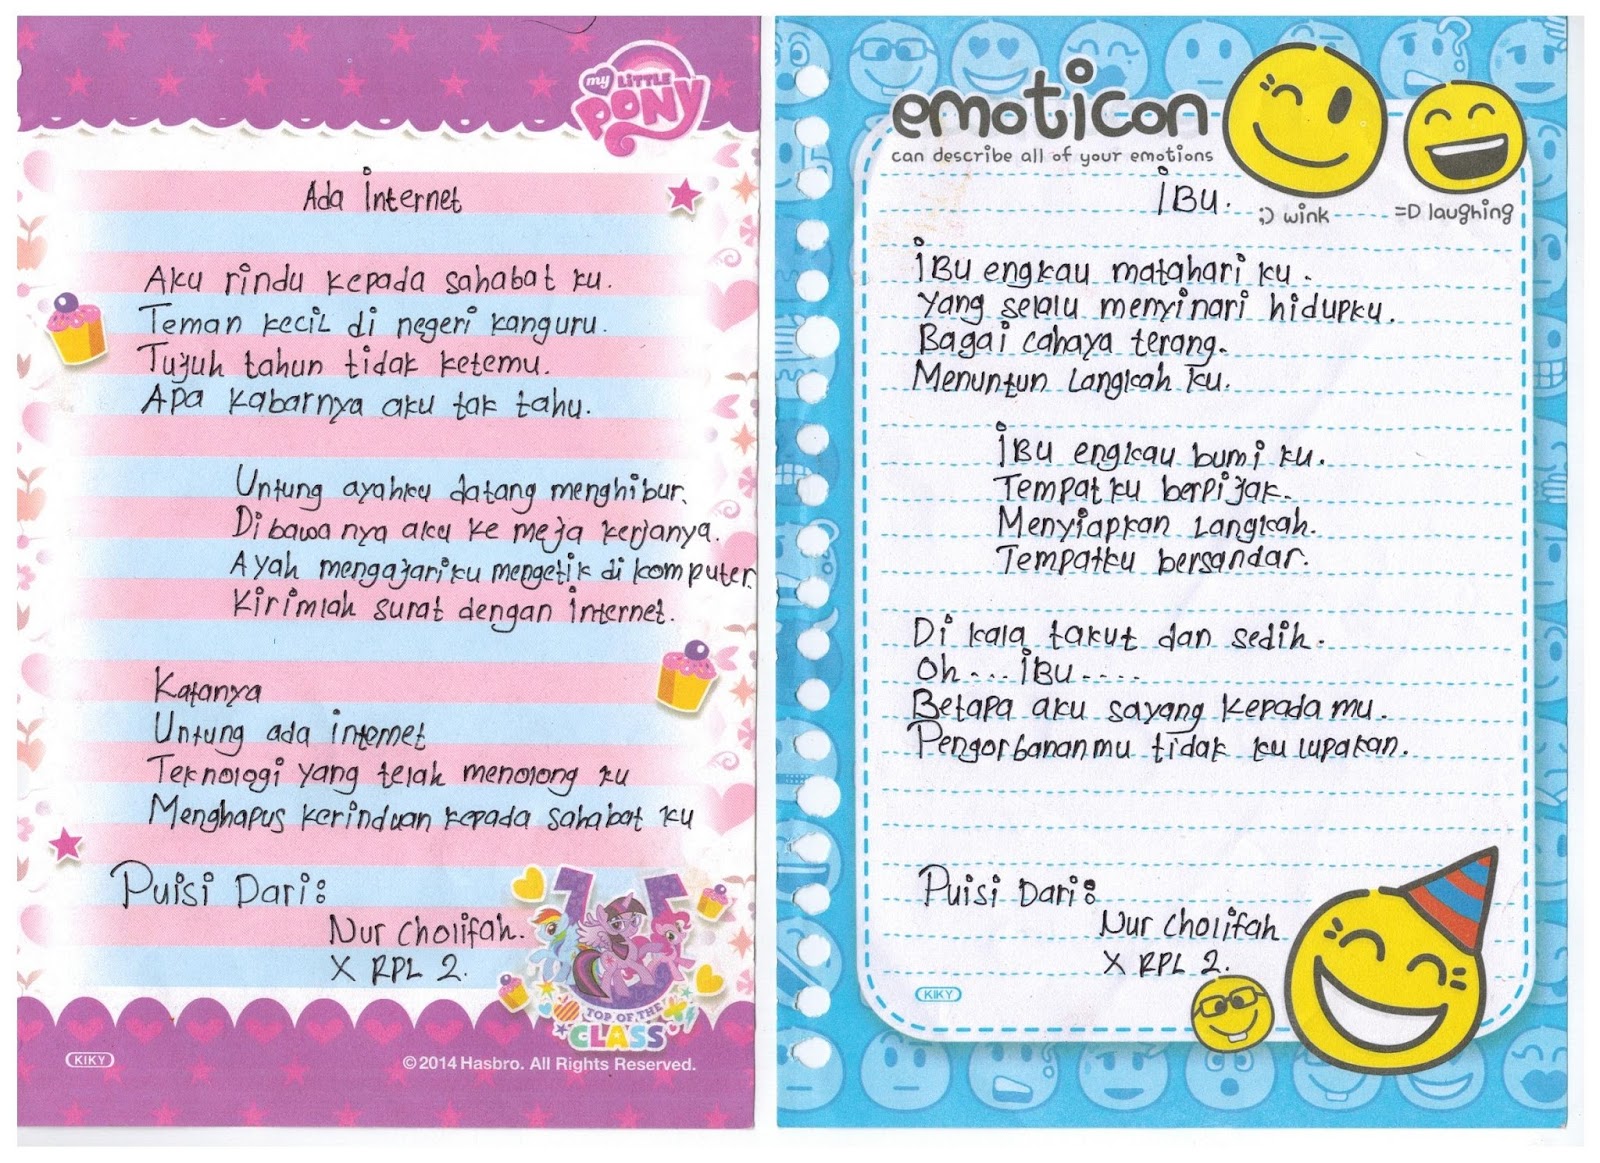 my LiTTLE
PONY
Ada Internet
Aku rindu kepada sahabat ku.
Teman kecil di negeri kanguru.
Tujuh tahun tidak ketemu.
Apa kabarnya aku tak tahu.
Untung ayahku datang menghibur.
Di bawa nya aku ke meja kerjanya.
Ayah mengajariku mengetik di komputer.
Kirimlah surat dengan internet.
Katanya
Untung ada internet
Teknologi yang telah menolong ku
Menghapus kerinduan kepada sahabat ku
Puisi Dari :
Nur Cholifah.
X RPL 2.
TOP OF THE
CLASS
KIKY
©2014 Hasbro. All Rights Reserved.
emoticon
can describe all of your emotions
;) wink
=D laughing
IBU.
IBU engkau matahari ku.
Yang selalu menyinari hidupku.
Bagai cahaya terang.
Menuntun Langkah ku.
IBU engkau bumi ku.
Tempatku berpijak.
Menyiapkan Langkah.
Tempatku bersandar.
Di kala takut dan sedih.
Oh...IBU....
Betapa aku sayang kepada mu.
Pengorbananmu tidak ku lupakan.
Puisi Dari :
Nur Cholifah
X RPL 2.
KIKY